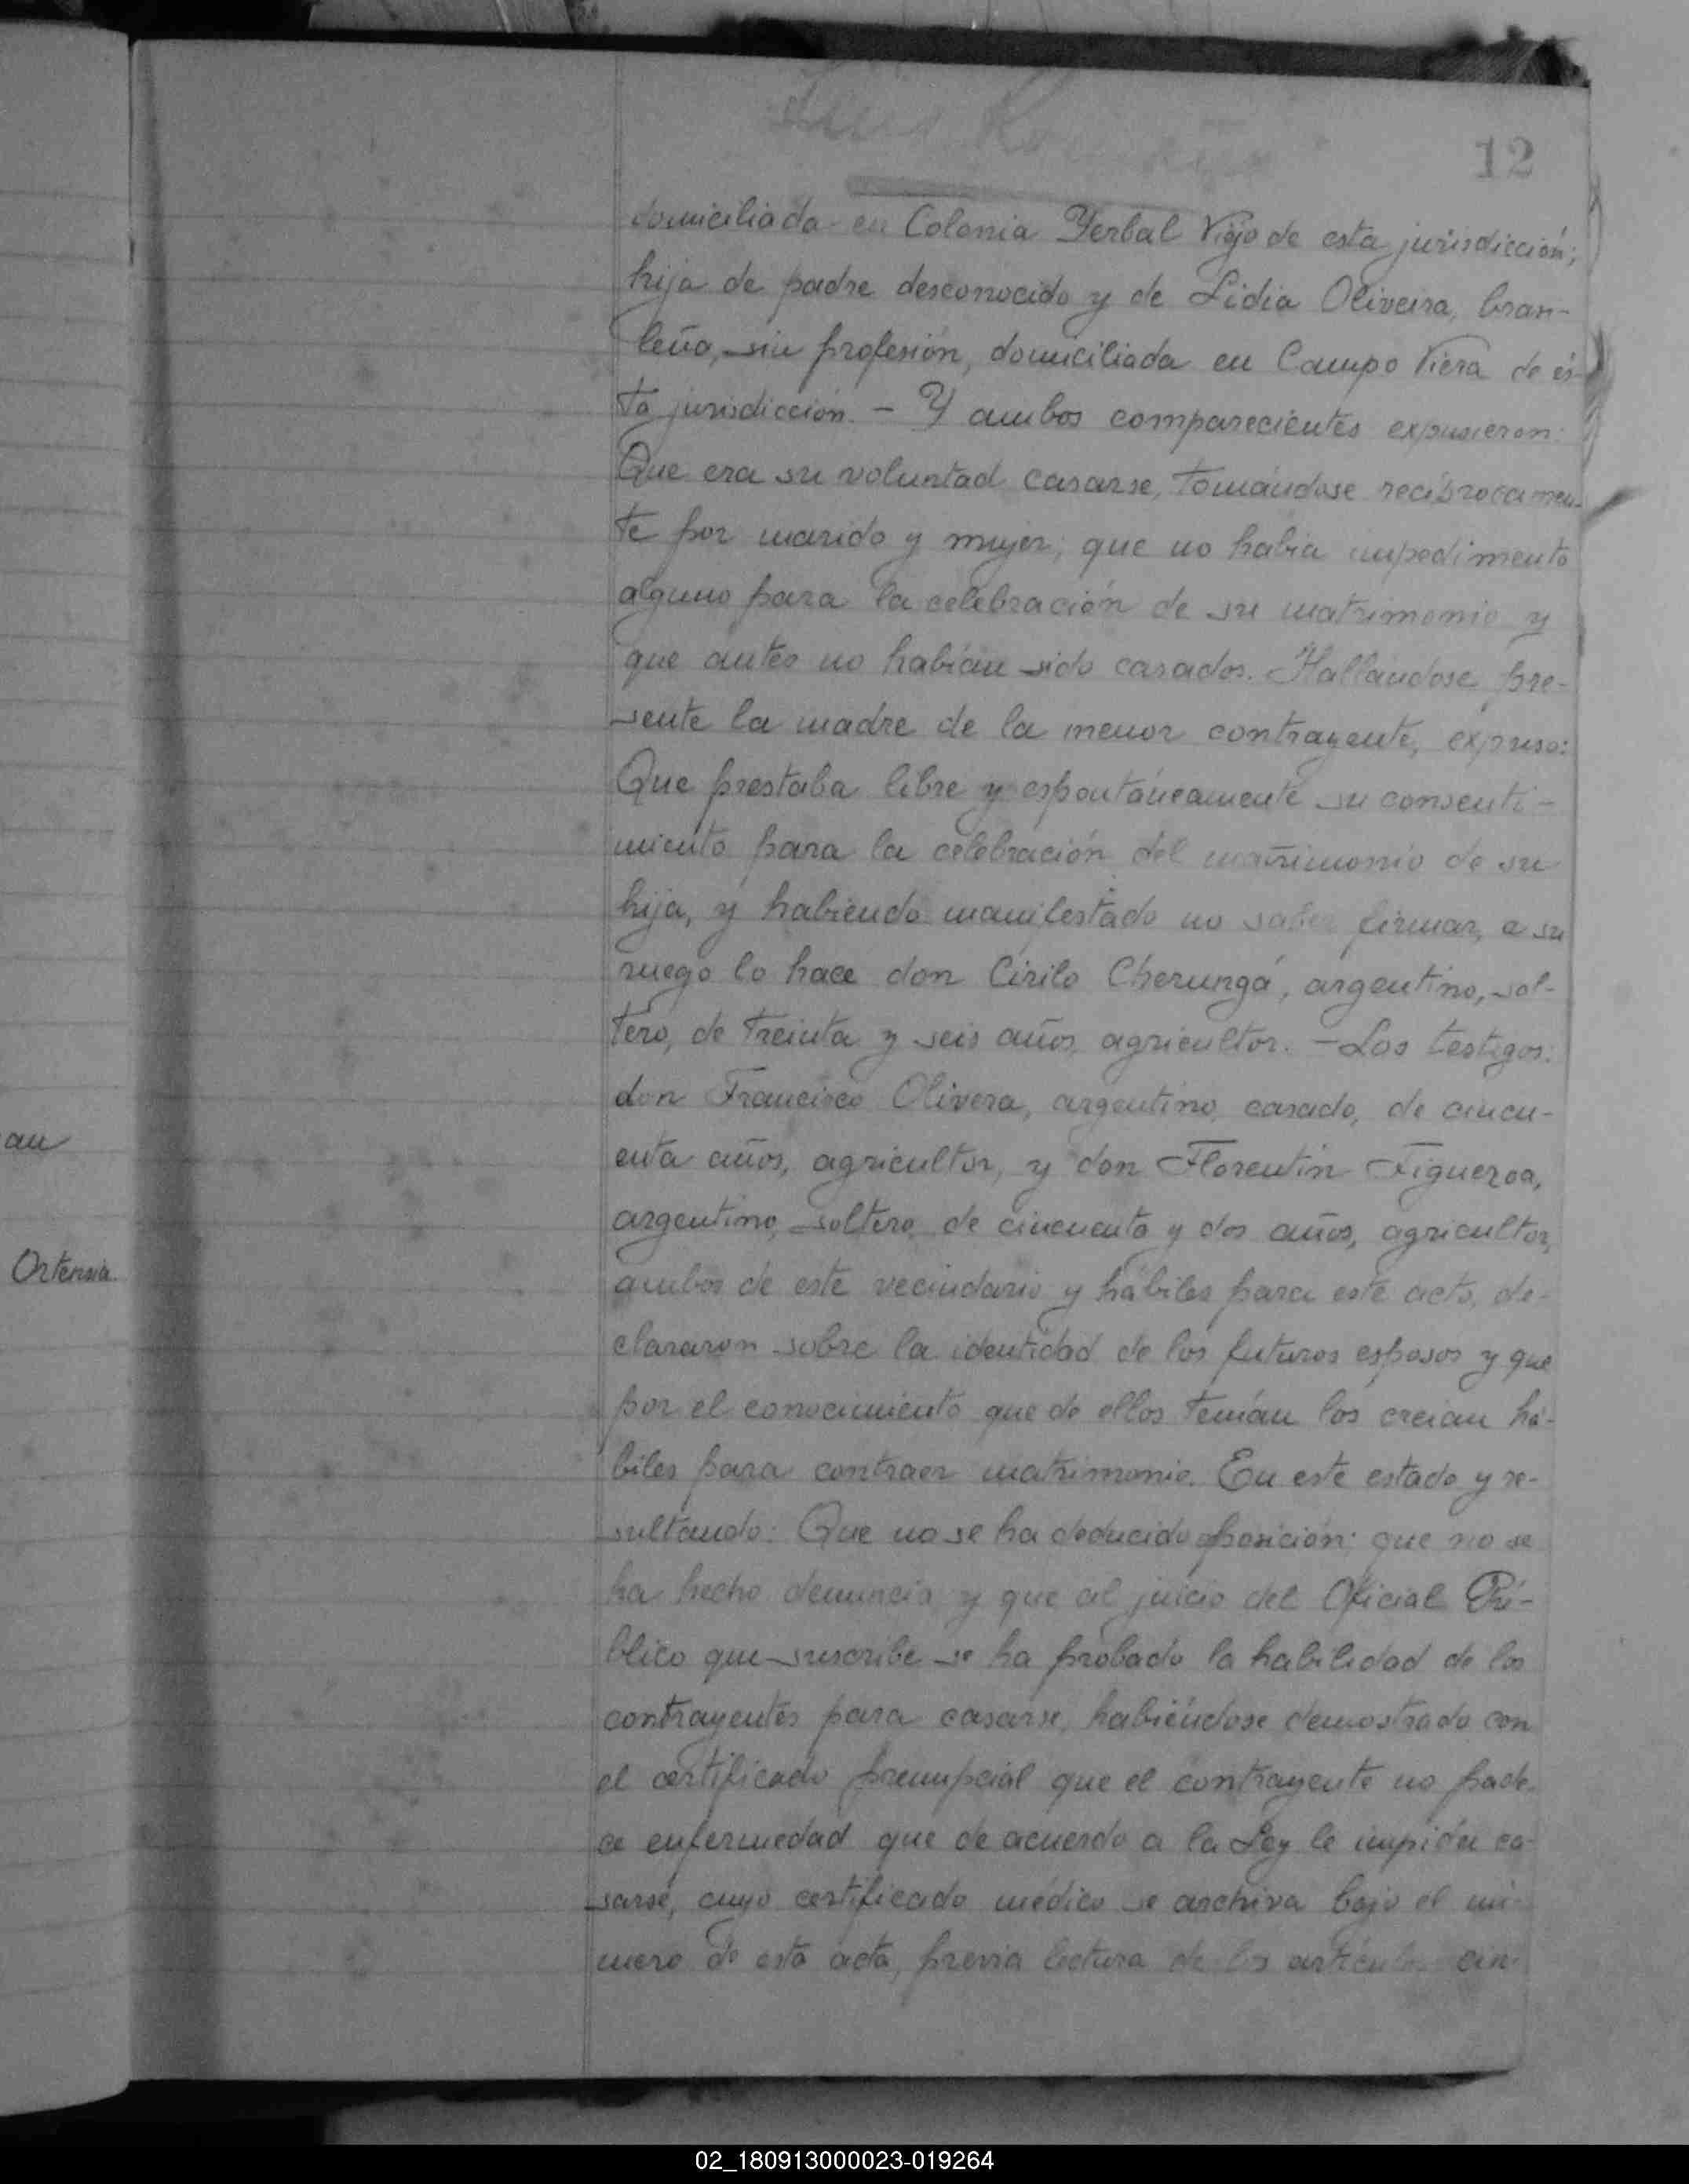 12
domiciliada en Colonia Yerbal Viejo de esta jurisdicción;
hija de padre desconocido y de Lidia Oliveira, brasi-
leña, sin profesión, domiciliada en Campo Viera de és-
ta jurisdicción. - Y ambos comparecientes expusieron:
Que era su voluntad casarse, tomándose recíprocamen-
te por marido y mujer; que no habia impedimento
alguno para la celebración de su matrimonio y
que antes no habían sido casados. Hallandose pre-
sente la madre de la menor contrayente, expuso:
Que prestaba libre y espontáneamente su consenti-
miento para la celebración del matrimonio de su
hija, y habiendo manifestado no saber firmar, a su
ruego lo hace don Cirilo Cherungá, argentino, sol-
tero, de treinta y seis años, agricultor. - Los testigos:
don Francisco Olivera, argentino, casado, de cincu-
enta años, agricultor, y don Florentín Figueroa,
argentino, soltero, de cincuenta y dos años, agricultor,
au
ambos de este vecindario y hábiles para este acto, de-
Ortensia.
clararon sobre la identidad de los futuros esposos y que
por el conocimiento que de ellos tenían los creian há-
biles para contraer matrimonio. En este estado y re-
sultando: Que no se ha deducido oposición; que no se
ha hecho denuncia y que al juicio del Oficial Pú-
blico que suscribe se ha probado la habilidad de los
contrayentes para casarse, habiéndose demostrado con
el certificado prenupcial que el contrayente no pade-
ce enfermedad que de acuerdo a la Ley le impida ca-
sarse, cuyo certificado médico se archiva bajo el nú-
mero de esta acta, previa lectura de los artículos cin-
02_180913000023-019264